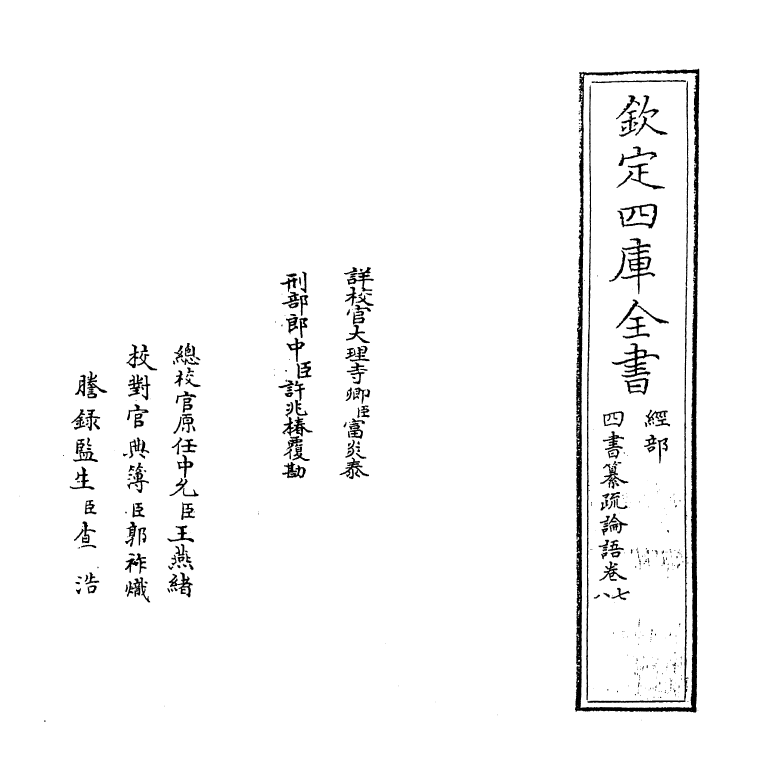 欽定四庫全書
經部
四書纂疏論語卷七八
詳校官大理寺卿臣富炎泰
刑部郎中臣許兆椿覆勘
總校官原任中允臣王燕緒
校對官典簿臣郭祚熾
謄錄監生臣查浩